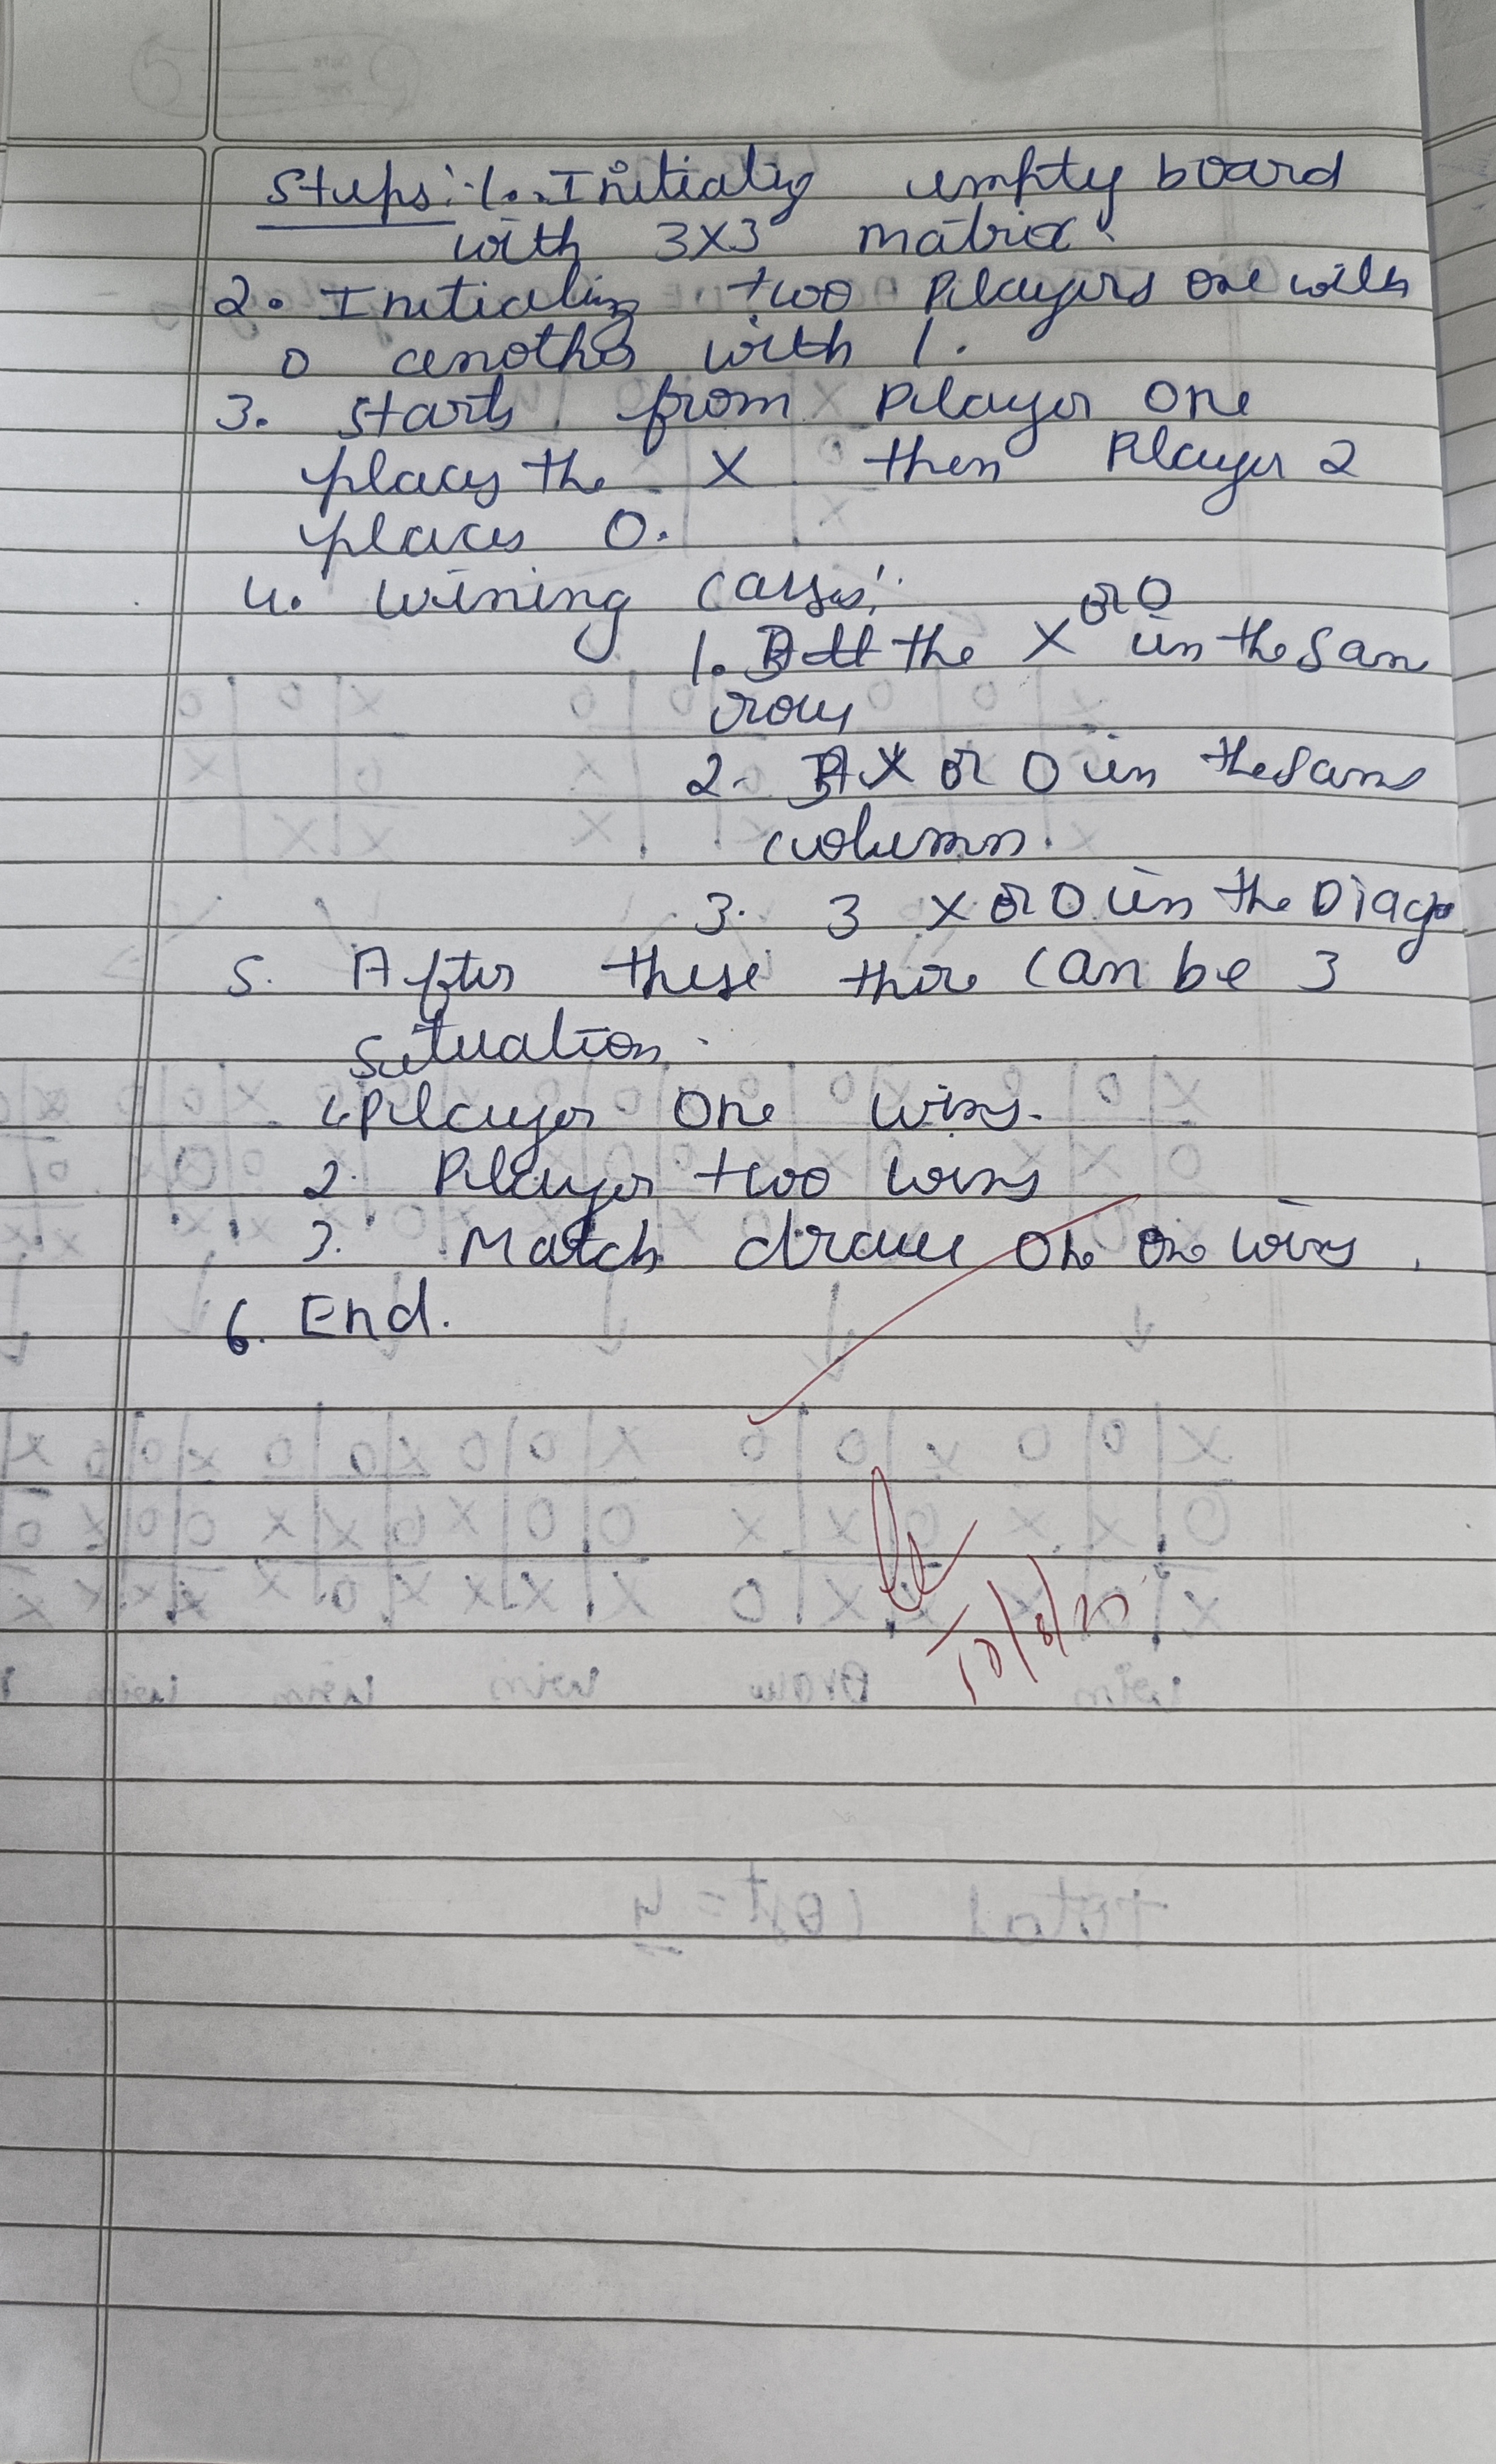 Steps:-1. Initializ empty board
with 3x3 matrix.
2. Initializ two Players one with
0 another with 1.
3. Starts from Player one
places the X then Player 2
places 0.
4. wining cases:
1. the X or 0 in the Sam
row
2. X or 0 in the Same
column.
3. 3 X or 0 in the Diago
5. After these there can be 3
Situation.
1. Player one wins.
2. Player two wins
3. Match draw wins.
6. End.
Total Cost = 4